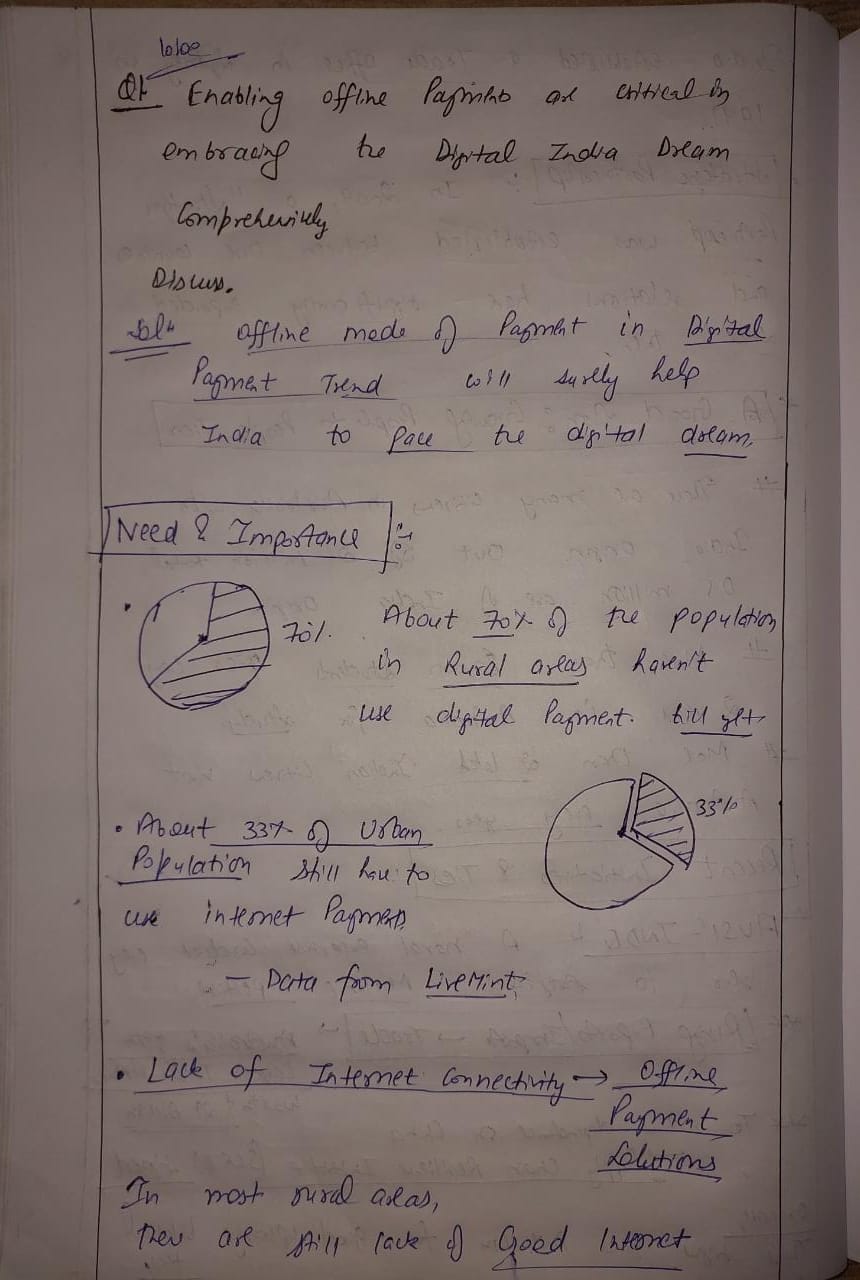 Q1 Enabling offline Payments are critical in
embracing the Digital India Dream
Comprehensively
Discuss.
Soln offline mode of Payment in Digital
Payment Trend will surely help
India to Pace the digital dream.
Need & Importance :-
70%. About 70% of the population
in Rural areas haven't
use digital Payment till yet
33%
• About 33% of Urban
Population still have to
use internet Payment.
- Data from LiveMint
• Lack of Internet Connectivity → Offline
Payment
Solutions
In most rural areas,
ther are still lack of Good Internet